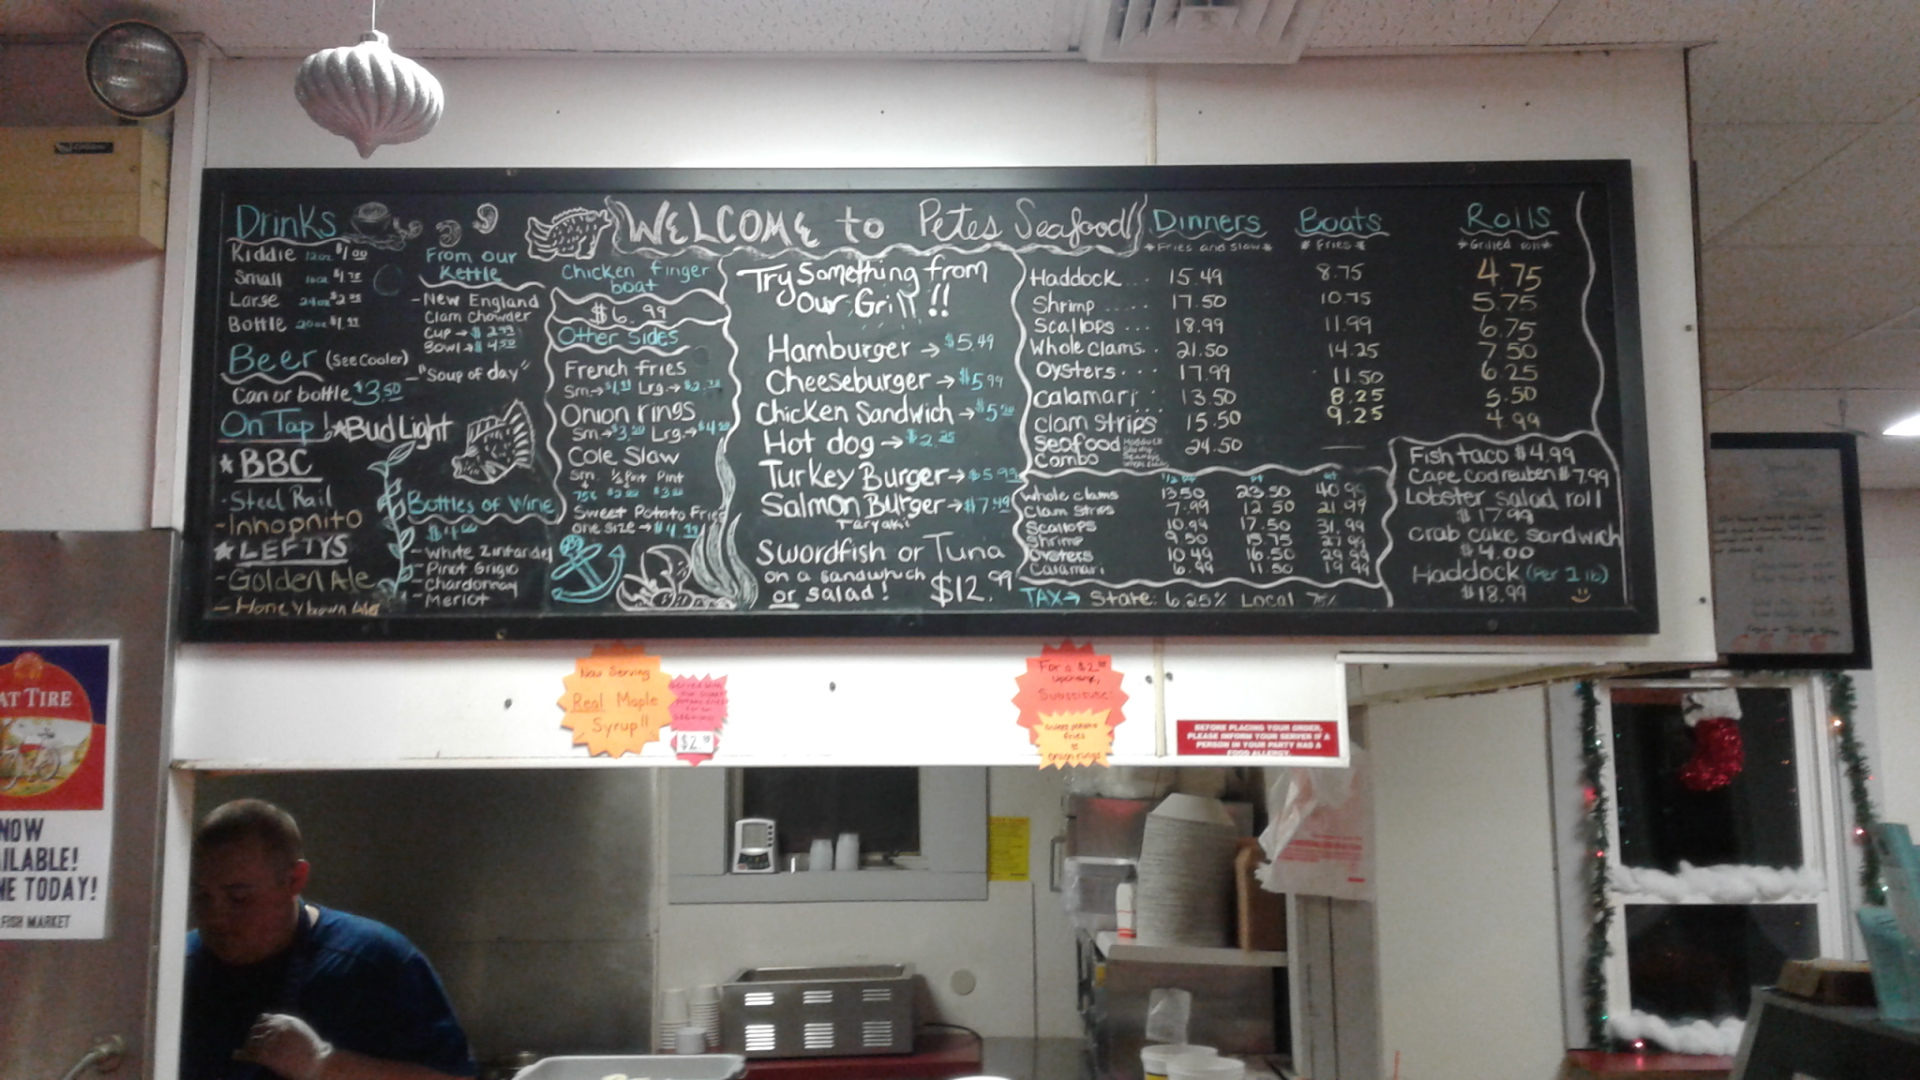 WELCOME to Petes Seafood!
Drinks
Kiddie 12oz $1.00
Small 16oz $1.75
Large 24oz
Bottle 20oz
Beer (See Cooler)
Can or bottle $3.50
On Tap! ★Bud Light
★BBC
-Steel Rail
-Inhopnito
★LEFTYS
-Golden Ale
-Honeybrown Ale
From our
Kettle
-New England
Clam Chowder
Cup → $2.99
Bowl → $4.50
-"Soup of day"
Bottles of Wine
-White Zinfandel
-Pinot Grigio
-Chardonnay
-Merlot
Chicken finger
boat
$6.99
Other Sides
French fries
Sm → Lrg →
Onion rings
Sm → $3.50 Lrg →
Cole Slaw
Sm. ½ Pint Pint
75¢
Sweet Potato Fries
one size →
Try Something from
Our Grill!!
Hamburger → $5.49
Cheeseburger → $5.99
Chicken Sandwich →
Hot dog → $2.25
Turkey Burger → $5.99
Salmon Burger → $7.49
Teryaki
Swordfish or Tuna
on a sandwhich
or salad! $12.99
Dinners Boats Rolls
*Fries and Slaw* *Fries* *Grilled roll*
Haddock... 15.49 8.75 4.75
Shrimp..... 17.50 10.75 5.75
Scallops .... 18.99 11.99 6.75
Whole Clams.. 21.50 14.25 7.50
Oysters.... 17.99 11.50 6.25
Calamari.... 13.50 8.25 5.50
Clam Strips 15.50 9.25 4.99
Seafood
Combo 24.50
Whole Clams 13.50 23.50
Clam Strips 7.99 12.50 21.99
Scallops 10.99 17.50 31.99
Shrimp 9.50 15.75
Oysters 10.49 16.50 29.99
Calamari 6.99 11.50 19.99
TAX→ State: 6.25% Local
Fish taco $4.99
Cape Cod reuben $7.99
Lobster salad roll
$17.99
Crab cake sandwich
$4.00
Haddock (Per 1 lb)
$18.99
Now Serving
Real Maple
Syrup!!
For a
upcharge,
Substitute:
Sweet potato
fries
or
onion rings
BEFORE PLACING YOUR ORDER,
PLEASE INFORM YOUR SERVER IF A
PERSON IN YOUR PARTY HAS A
FOOD ALLERGY.
AT TIRE
NOW
AILABLE!
NE TODAY!
FISH MARKET